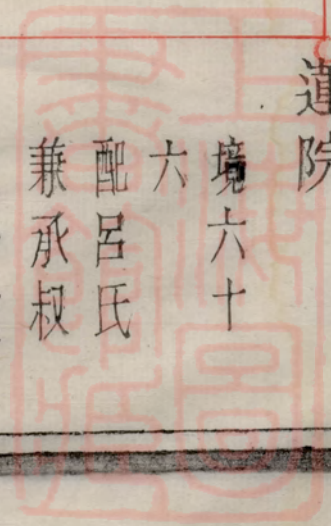 遺院
境六十
六
配呂氏
兼承叔